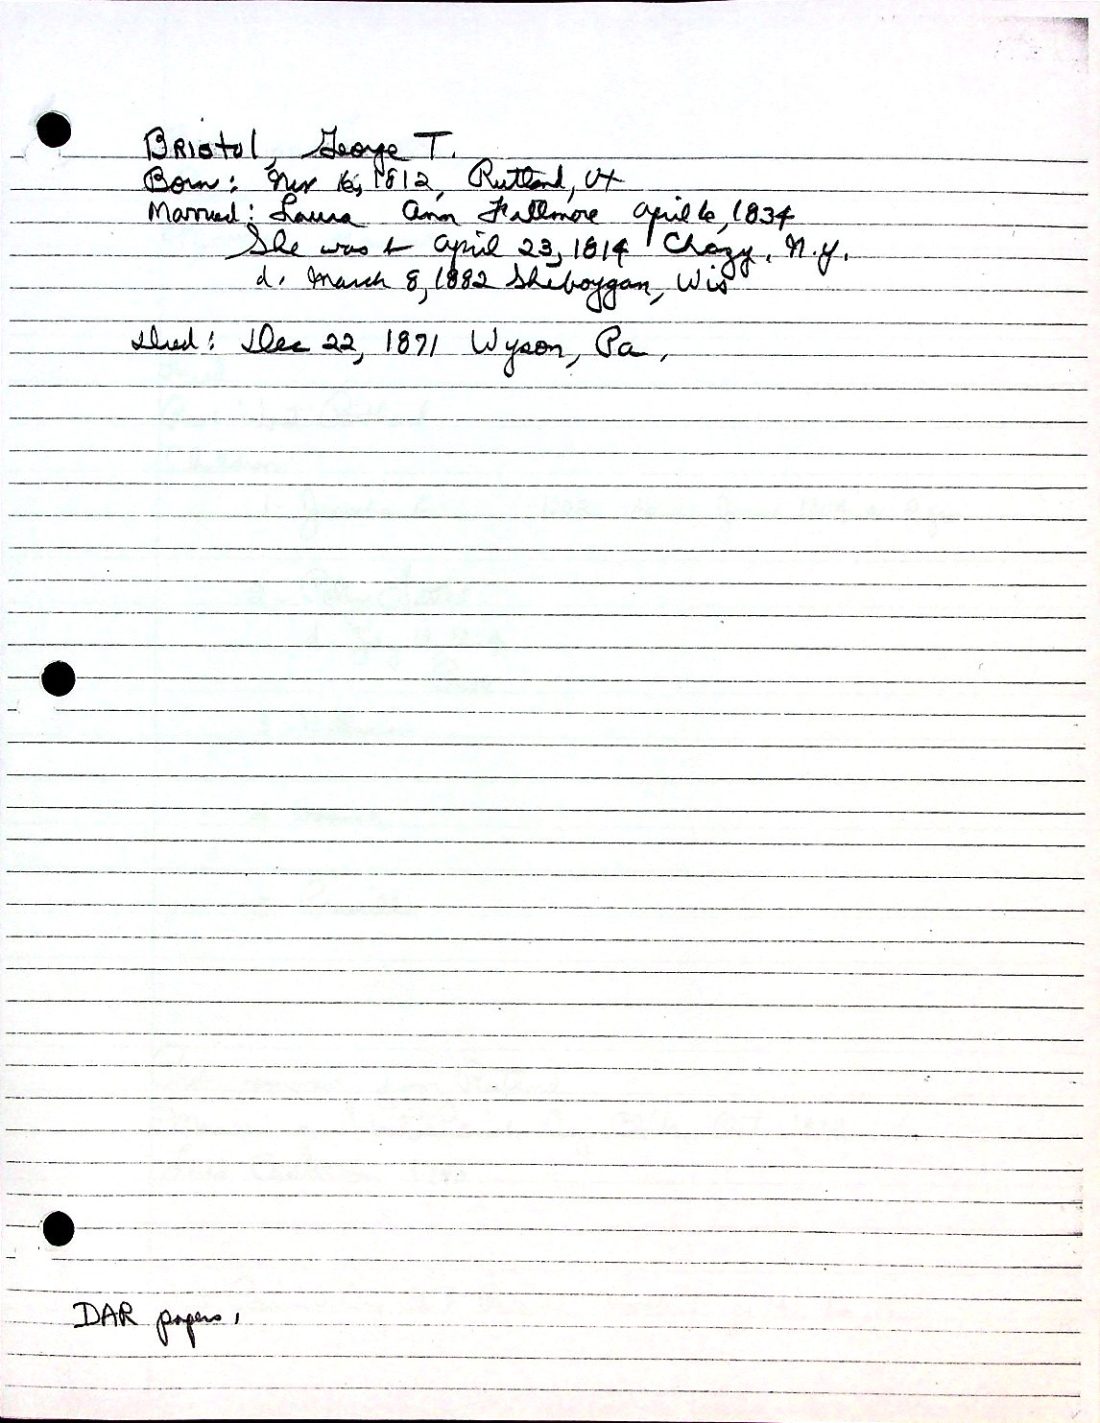 Bristol, George T.
Born: Nov 16, 1812, Rutland, Vt
Married: Laura Ann Fillmore April 6, 1834
She was b April 23, 1814 Chazy, N.Y.
d. March 8, 1882 Sheboygan, Wis
Died: Dec 22, 1871 Wyson, Pa.
DAR papers.